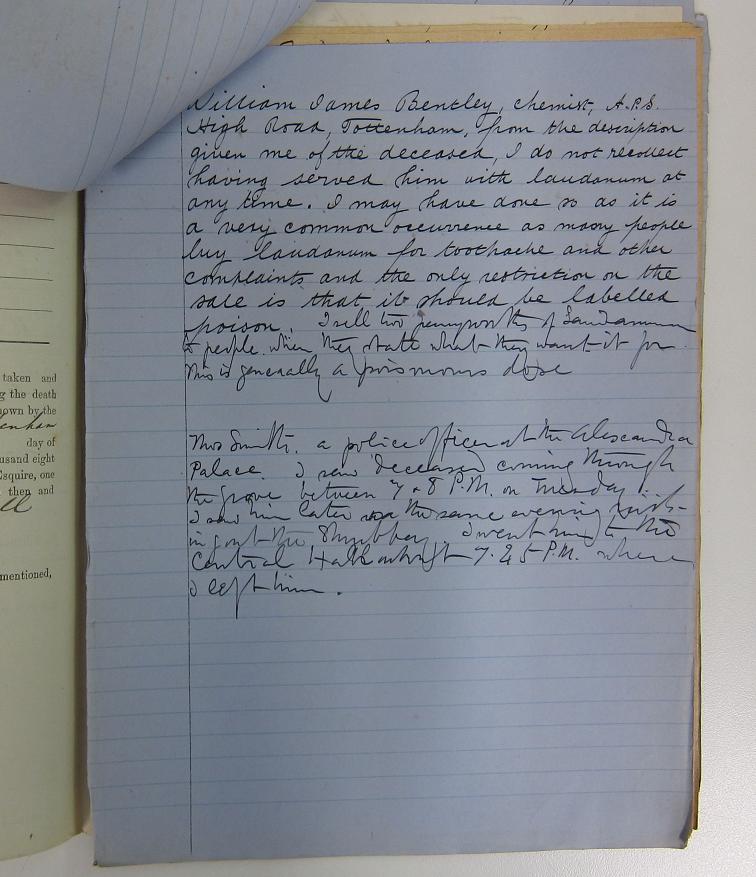 William James Bentley, Chemist, A.P.S.
High Road, Tottenham, from the description
given me of the deceased, I do not recollect
having served him with laudanum at
any time. I may have done so as it is
a very common occurrence as many people
buy laudanum for toothache and other
complaints and the only restriction on the
sale is that it should be labelled
poison. I sell two pennyworths of Laudanum
to people when they state what they want it for
This is generally a poisonous dose
Thos Smith. a police officer at the Alexandra
Palace. I saw deceased coming through
the grove between 7 & 8 P.M. on Tuesday
I saw him later on the same evening
in the Shrubbery. I went to the
Central Hall 7.25 P.M. where
I left him.
taken and
g the death
own by the
enham
day of
usand eight
Esquire, one
then and
ell
mentioned,